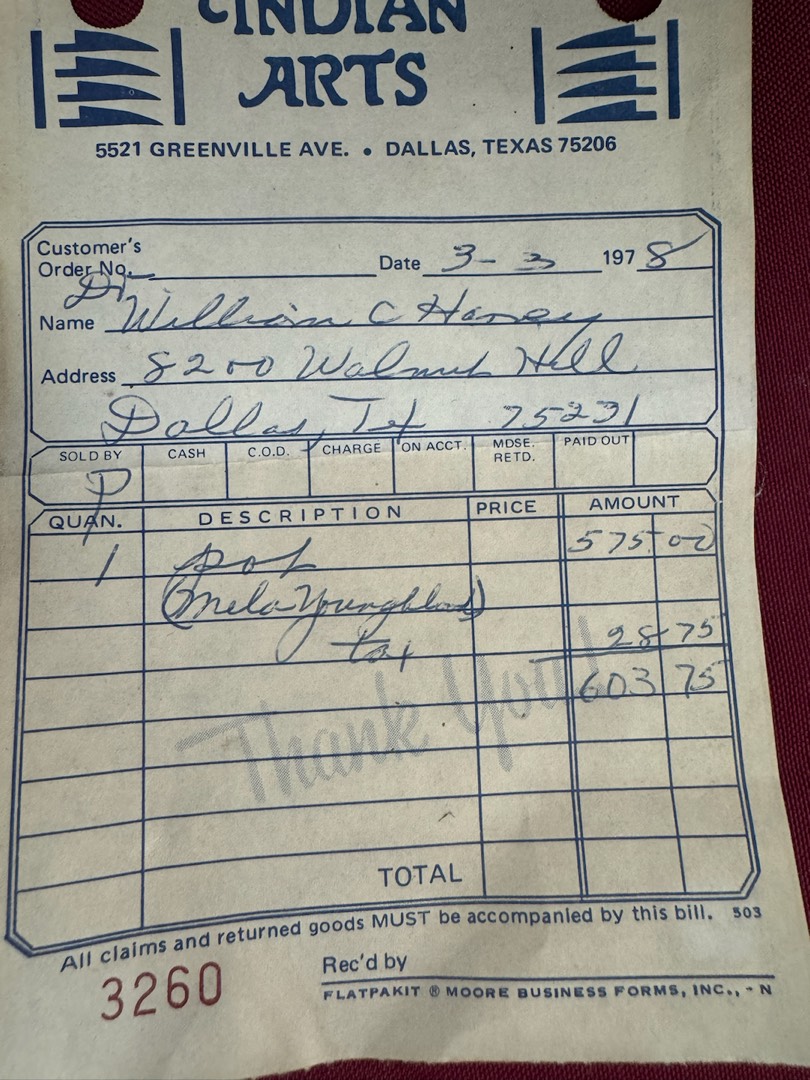 INDIAN
ARTS
5521 GREENVILLE AVE. • DALLAS, TEXAS 75206
Customer's
Order No.
Date 3-3 1978
Dr
Name William C Haney
Address 8200 Walnut Hill
Dallas, Tx 75231
SOLD BY CASH C.O.D. CHARGE ON ACCT. MDSE. RETD. PAID OUT
P
QUAN. DESCRIPTION PRICE AMOUNT
1 pot 575 00
(Mela Youngblood)
tax 28 75
603 75
Thank You!
TOTAL
All claims and returned goods MUST be accompanied by this bill. 503
3260
Rec'd by
FLATPAKIT ® MOORE BUSINESS FORMS, INC., - N